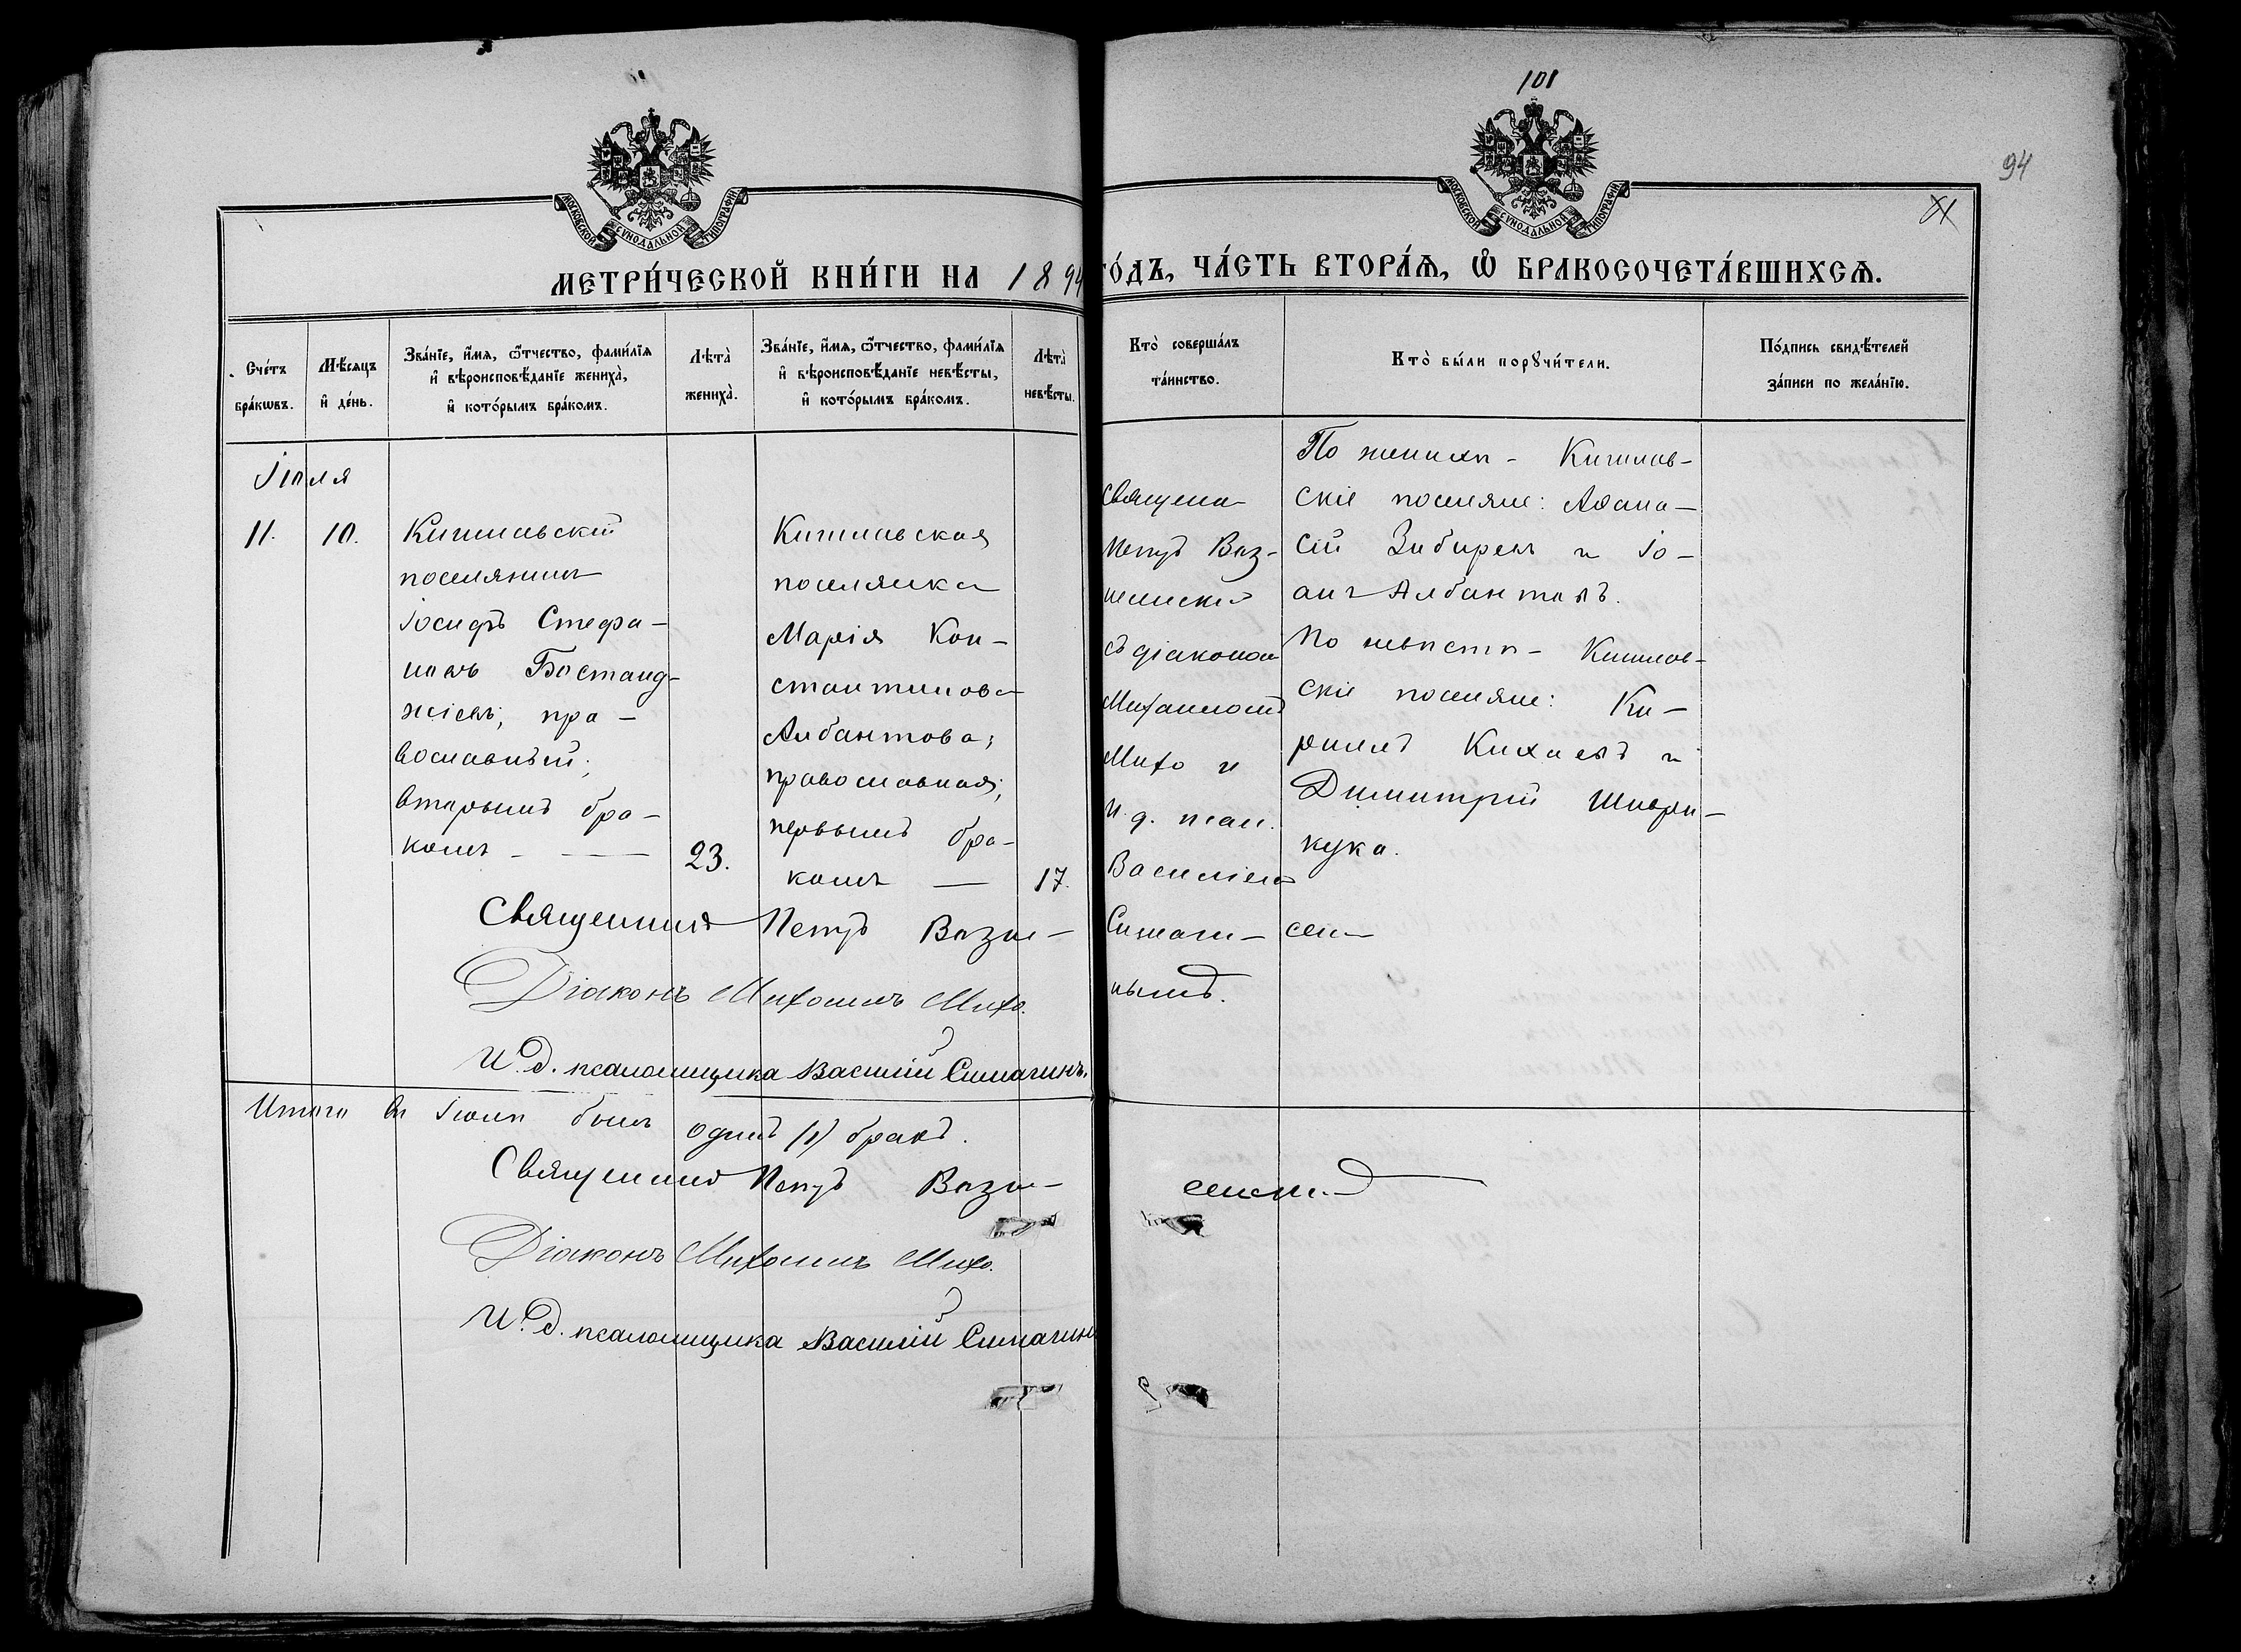 101
94
XI
МОСКОВСКОЙ СѴНОДАЛЬНОЙ ТИПОГРАФІИ
МОСКОВСКОЙ СѴНОДАЛЬНОЙ ТИПОГРАФІИ
МЕТРИ́ЧЕСКОЙ КНИ́ГИ НА 1894
ГО́ДЪ, ЧА́СТЬ ВТОРА́Ѧ, Ѽ БРАКОСОЧЕТА́ВШИХСѦ.
Сче́тъ
бра́кѡвъ.
Мѣ́сяцъ
и҆ де́нь.
Зва́нїе, и҆́мѧ, ѻ҆́тчество, фами́лїѧ
и҆ вѣроисповѣ́данїе жениха̀,
и҆ кото́рымъ бра́комъ.
Лѣта̀
жениха̀.
Зва́нїе, и҆́мѧ, ѻ҆́тчество, фами́лїѧ
и҆ вѣроисповѣ́данїе невѣ́сты,
и҆ кото́рымъ бра́комъ.
Лѣта̀
невѣ́сты.
Кто̀ соверша́лъ
та́инство.
Кто̀ бы́ли порꙋчи́тели.
По́дпись свидѣ́телей
за́писи по жела́нїю.
Іюля
11.
10.
Кишлавскій
поселянинъ
Іосифъ Стефа-
новъ Бостанд-
жіевъ; пра-
вославный;
вторымъ бра-
комъ -
23.
Кишлавская
поселянка
Марія Кон-
стантинова
Албантова;
православная;
первымъ бра-
комъ —
17.
Священ
Петръ Вяз-
менскій
съ діакономъ
Михаиломъ
Михо и
и. д. псал.
Василіемъ
Симаги-
нымъ.
По женихѣ - Кишлав-
скіе поселяне: Аѳана-
сій Зибиревъ и Іо-
анъ Албантовъ.
По невѣстѣ - Кишлав-
скіе поселяне: Ки-
риллъ Кихаевъ и
Димитрій Шиври-
кука.
Священникъ Петръ Вязм-
Діаконъ Михаилъ Михо.
И. д. псаломщика Василій Симагинъ.
Итого въ Іюлѣ былъ одинъ (1) бракъ.
Священникъ Петръ Вязм-
Діаконъ Михаилъ Михо.
И. д. псаломщика Василій Симагинъ